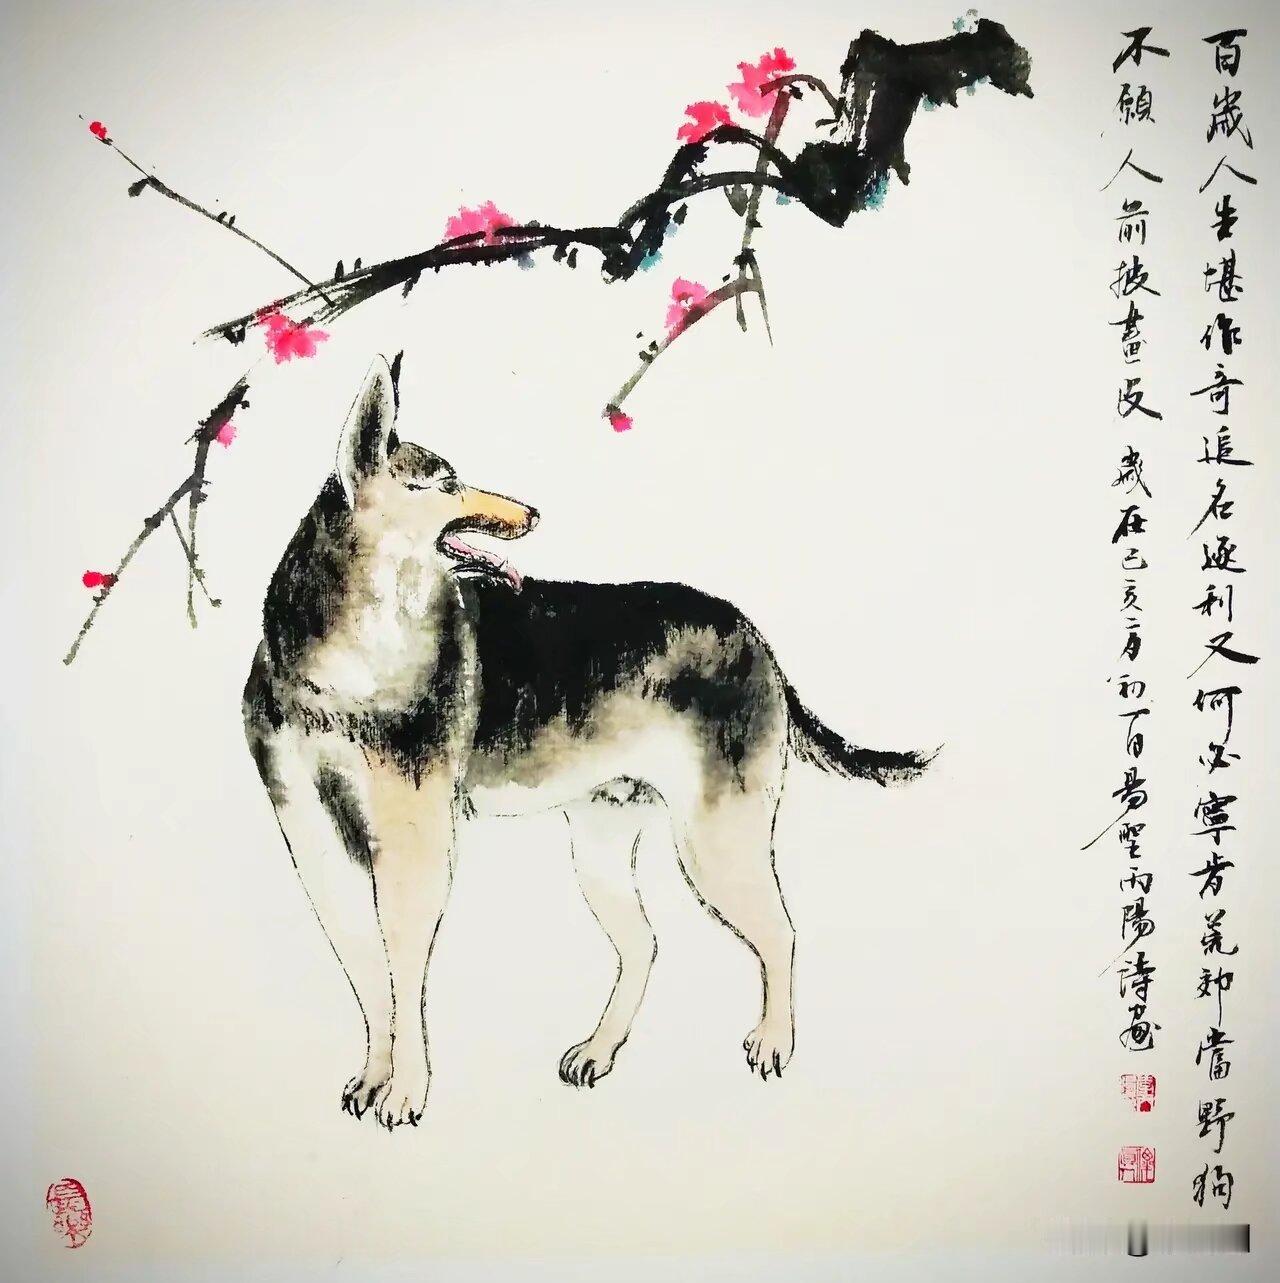 百歲人生堪作奇追名逐利又何必寧肯荒郊當野狗
不願人前披畫皮 歲在己亥二月初一日易聖雨陽詩畫